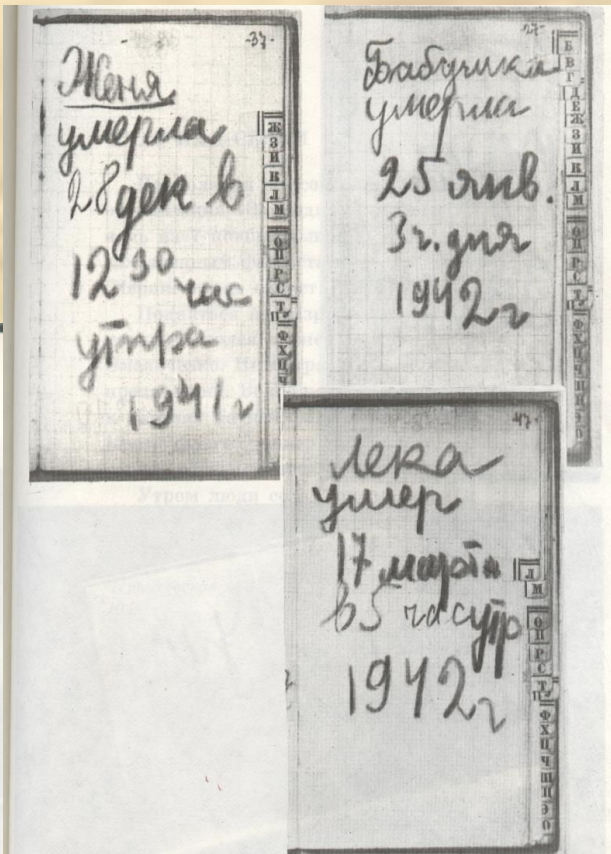 -37-
Женя
умерла
28 дек в
12 30 час
утра
1941 г
Ж
З
И
К
Л
М
О
П
Р
С
Т
У
Ф
Х
Ц
Ч
Бабушка
умерла
25 янв.
3 ч. дня
1942 г
Б
В
Г
Д
Е
Ж
З
И
К
Л
М
О
П
Р
С
Т
У
Ф
Х
Ц
Ч
Ш
Щ
Э
Ю
Лека
умер
17 марта
в 5 час утр
1942 г
Л
М
О
П
Р
С
Т
У
Ф
Х
Ц
Ч
Ш
Щ
Э
Ю